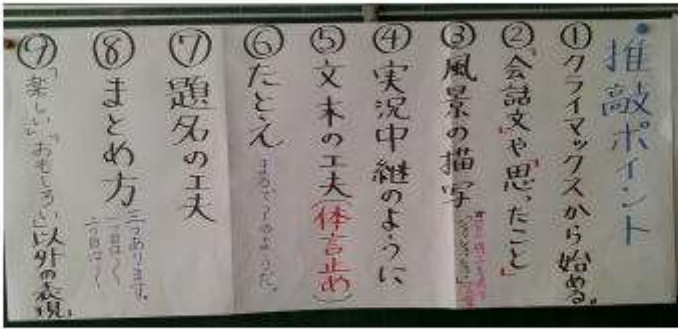 推敲ポイント
①クライマックスから始める。
②「会話文」や「思ったこと」
③風景の描写
④実況中継のように
⑤文末の工夫(体言止め)
⑥たとえ まるで〜のようだ。
⑦題名の工夫
⑧まとめ方 二つあります。
一つ目は〜
二つ目は〜
⑨「楽しい」「おもしろい」以外の表現。